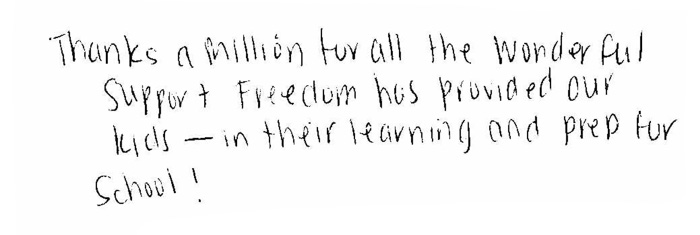 Thanks a million for all the wonderful
support Freedom has provided our
kids — in their learning and prep for
school!